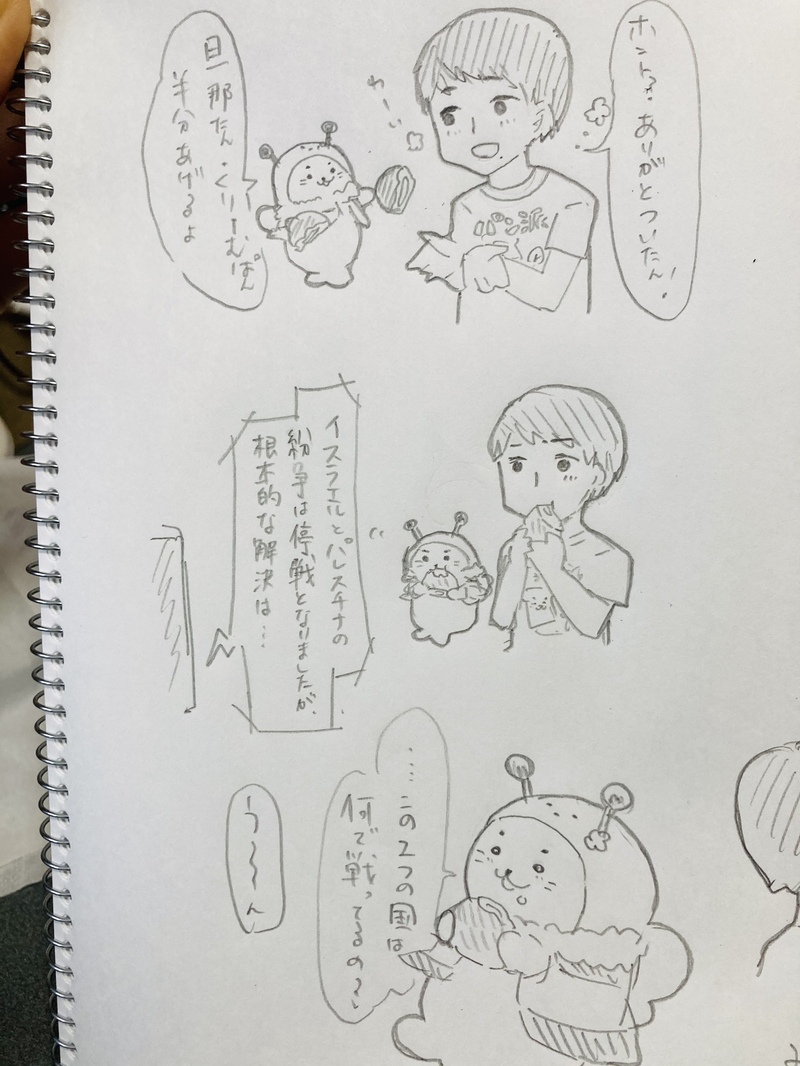 旦那たん、くりーむぱん
半分あげるよ
わーい
ホント?ありがとついたん!
イスラエルとパレスチナの
紛争は停戦となりましたが、
根本的な解決は…
……この2つの国は
何で戦ってるの?
う〜〜ん